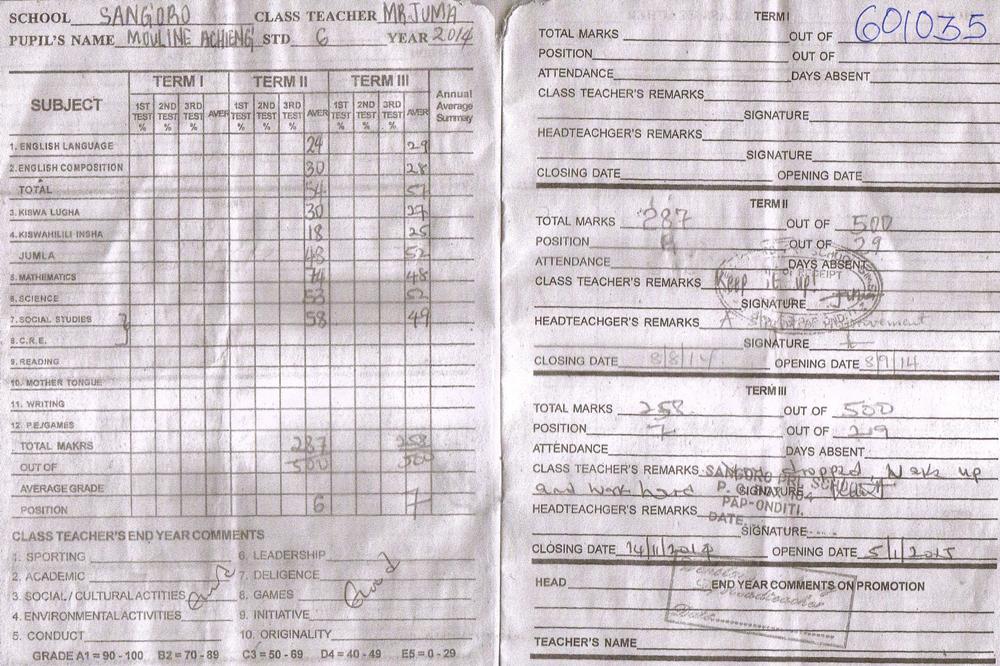 SCHOOL SANG'ORO CLASS TEACHER MR JUMA
PUPIL'S NAME MOULINE ACHIENG STD 6 YEAR 2014
SUBJECT TERM I TERM II TERM III Annual Average Summary
1ST TEST % 2ND TEST % 3RD TEST % AVER 1ST TEST % 2ND TEST % 3RD TEST % AVER 1ST TEST % 2ND TEST % 3RD TEST % AVER
1. ENGLISH LANGUAGE 24 29
2. ENGLISH COMPOSITION 30 28
TOTAL 54 57
3. KISWA LUGHA 30 27
4. KISWAHILILI INSHA 18 25
JUMLA 48 52
5. MATHEMATICS 74 48
6. SCIENCE 53 52
7. SOCIAL STUDIES 58 49
8. C.R.E.
9. READING
10. MOTHER TONGUE
11. WRITING
12. P.E/GAMES
TOTAL MAKRS 287 258
OUT OF 500 500
AVERAGE GRADE
POSITION 6 7
CLASS TEACHER'S END YEAR COMMENTS
1. SPORTING 6. LEADERSHIP
2. ACADEMIC 7. DELIGENCE
3. SOCIAL/CULTURAL ACTITIES Good 8. GAMES Good
4. ENVIRONMENTAL ACTIVITIES 9. INITIATIVE
5. CONDUCT 10. ORIGINALITY
GRADE A1 = 90 - 100 B2 = 70 - 89 C3 = 50 - 69 D4 = 40 - 49 E5 = 0 - 29
TERM I
601035
TOTAL MARKS OUT OF
POSITION OUT OF
ATTENDANCE DAYS ABSENT
CLASS TEACHER'S REMARKS
SIGNATURE
HEADTEACHGER'S REMARKS
SIGNATURE
CLOSING DATE OPENING DATE
TERM II
TOTAL MARKS 287 OUT OF 500
POSITION OUT OF 29
ATTENDANCE DAYS ABSENT
CLASS TEACHER'S REMARKS Keep it up!
SIGNATURE
HEADTEACHGER'S REMARKS A improvement
SIGNATURE
CLOSING DATE 8/8/14 OPENING DATE 8/9/14
TERM III
TOTAL MARKS 258 OUT OF 500
POSITION 7 OUT OF 29
ATTENDANCE DAYS ABSENT
CLASS TEACHER'S REMARKS dropped Wake up
and work hard SIGNATURE
SANGORO PRI. SCHOOL
P. O.
PAP-ONDITI.
DATE
HEADTEACHGER'S REMARKS
SIGNATURE
CLOSING DATE 14/11/2014 OPENING DATE 5/1/2015
HEAD END YEAR COMMENTS ON PROMOTION
Date
TEACHER'S NAME